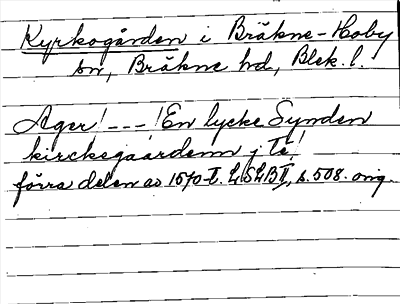 Kyrkogården i Bräkne-Hoby
sn, Bräkne hd, Blek. l.
Ager! ---! En lycke Synden
kirckegaardenn j Te!
förra delen av 1570-t. LSLB II, s. 508. orig.